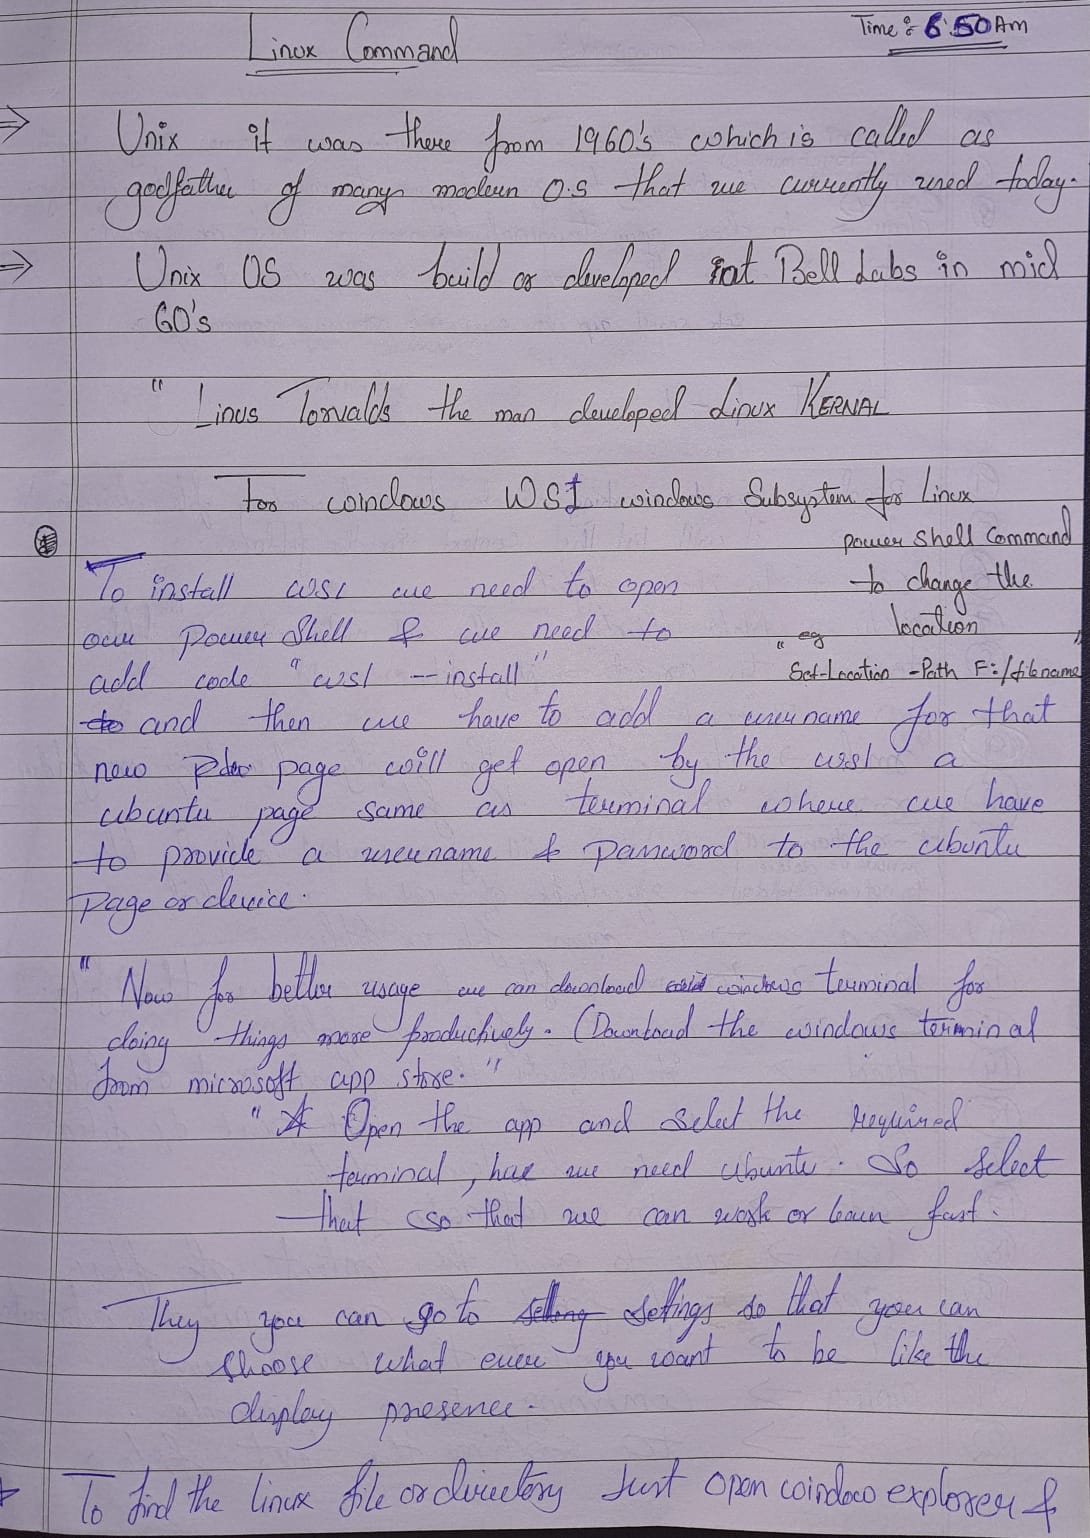 Linux Command
Time : 6:50 Am
⇒ Unix it was there from 1960's which is called as
godfather of many modern O.S that we currently used today.
⇒ Unix OS was build or developed at Bell Labs in mid
60's
" Linus Torvalds the man developed Linux KERNAL
For windows WSL windows Subsystem for Linux
power shell Command
to change the
location
" eg
Set-Location -Path F:/filename"
To install wsl we need to open
our Power Shell & we need to
add code "wsl --install"
and then we have to add a username for that
new page will get open by the wsl a
ubuntu page same as terminal where we have
to provide a username & Password to the ubuntu
Page or device.
" Now for better usage we can download windows terminal for
doing things more productively. (Download the windows terminal
from microsoft app store."
" Open the app and select the required
terminal, here we need ubuntu. So select
that so that we can work or learn fast.
They you can go to settings so that you can
choose what ever you want to be like the
display presence.
To find the linux file or directory Just open window explorer &